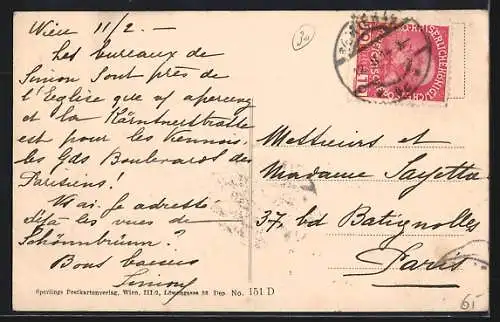 Wien 11/2 —
Les bureaux de
Simon sont près de
l'Eglise que vs apercevez
et la Kärntnerstrasse
est pour les Viennois,
les Gds Boulevards des
Parisiens!
Vs ai-je adressé
déjà les vues de
Schönnbrünn?
Bons baisers
Simony
30
Messieurs et
Madame Sayetta
37, bd Batignolles
Paris
65
Sperlings Postkartenverlag, Wien, III/2, Löwengasse 28 Dep. No. 151 D